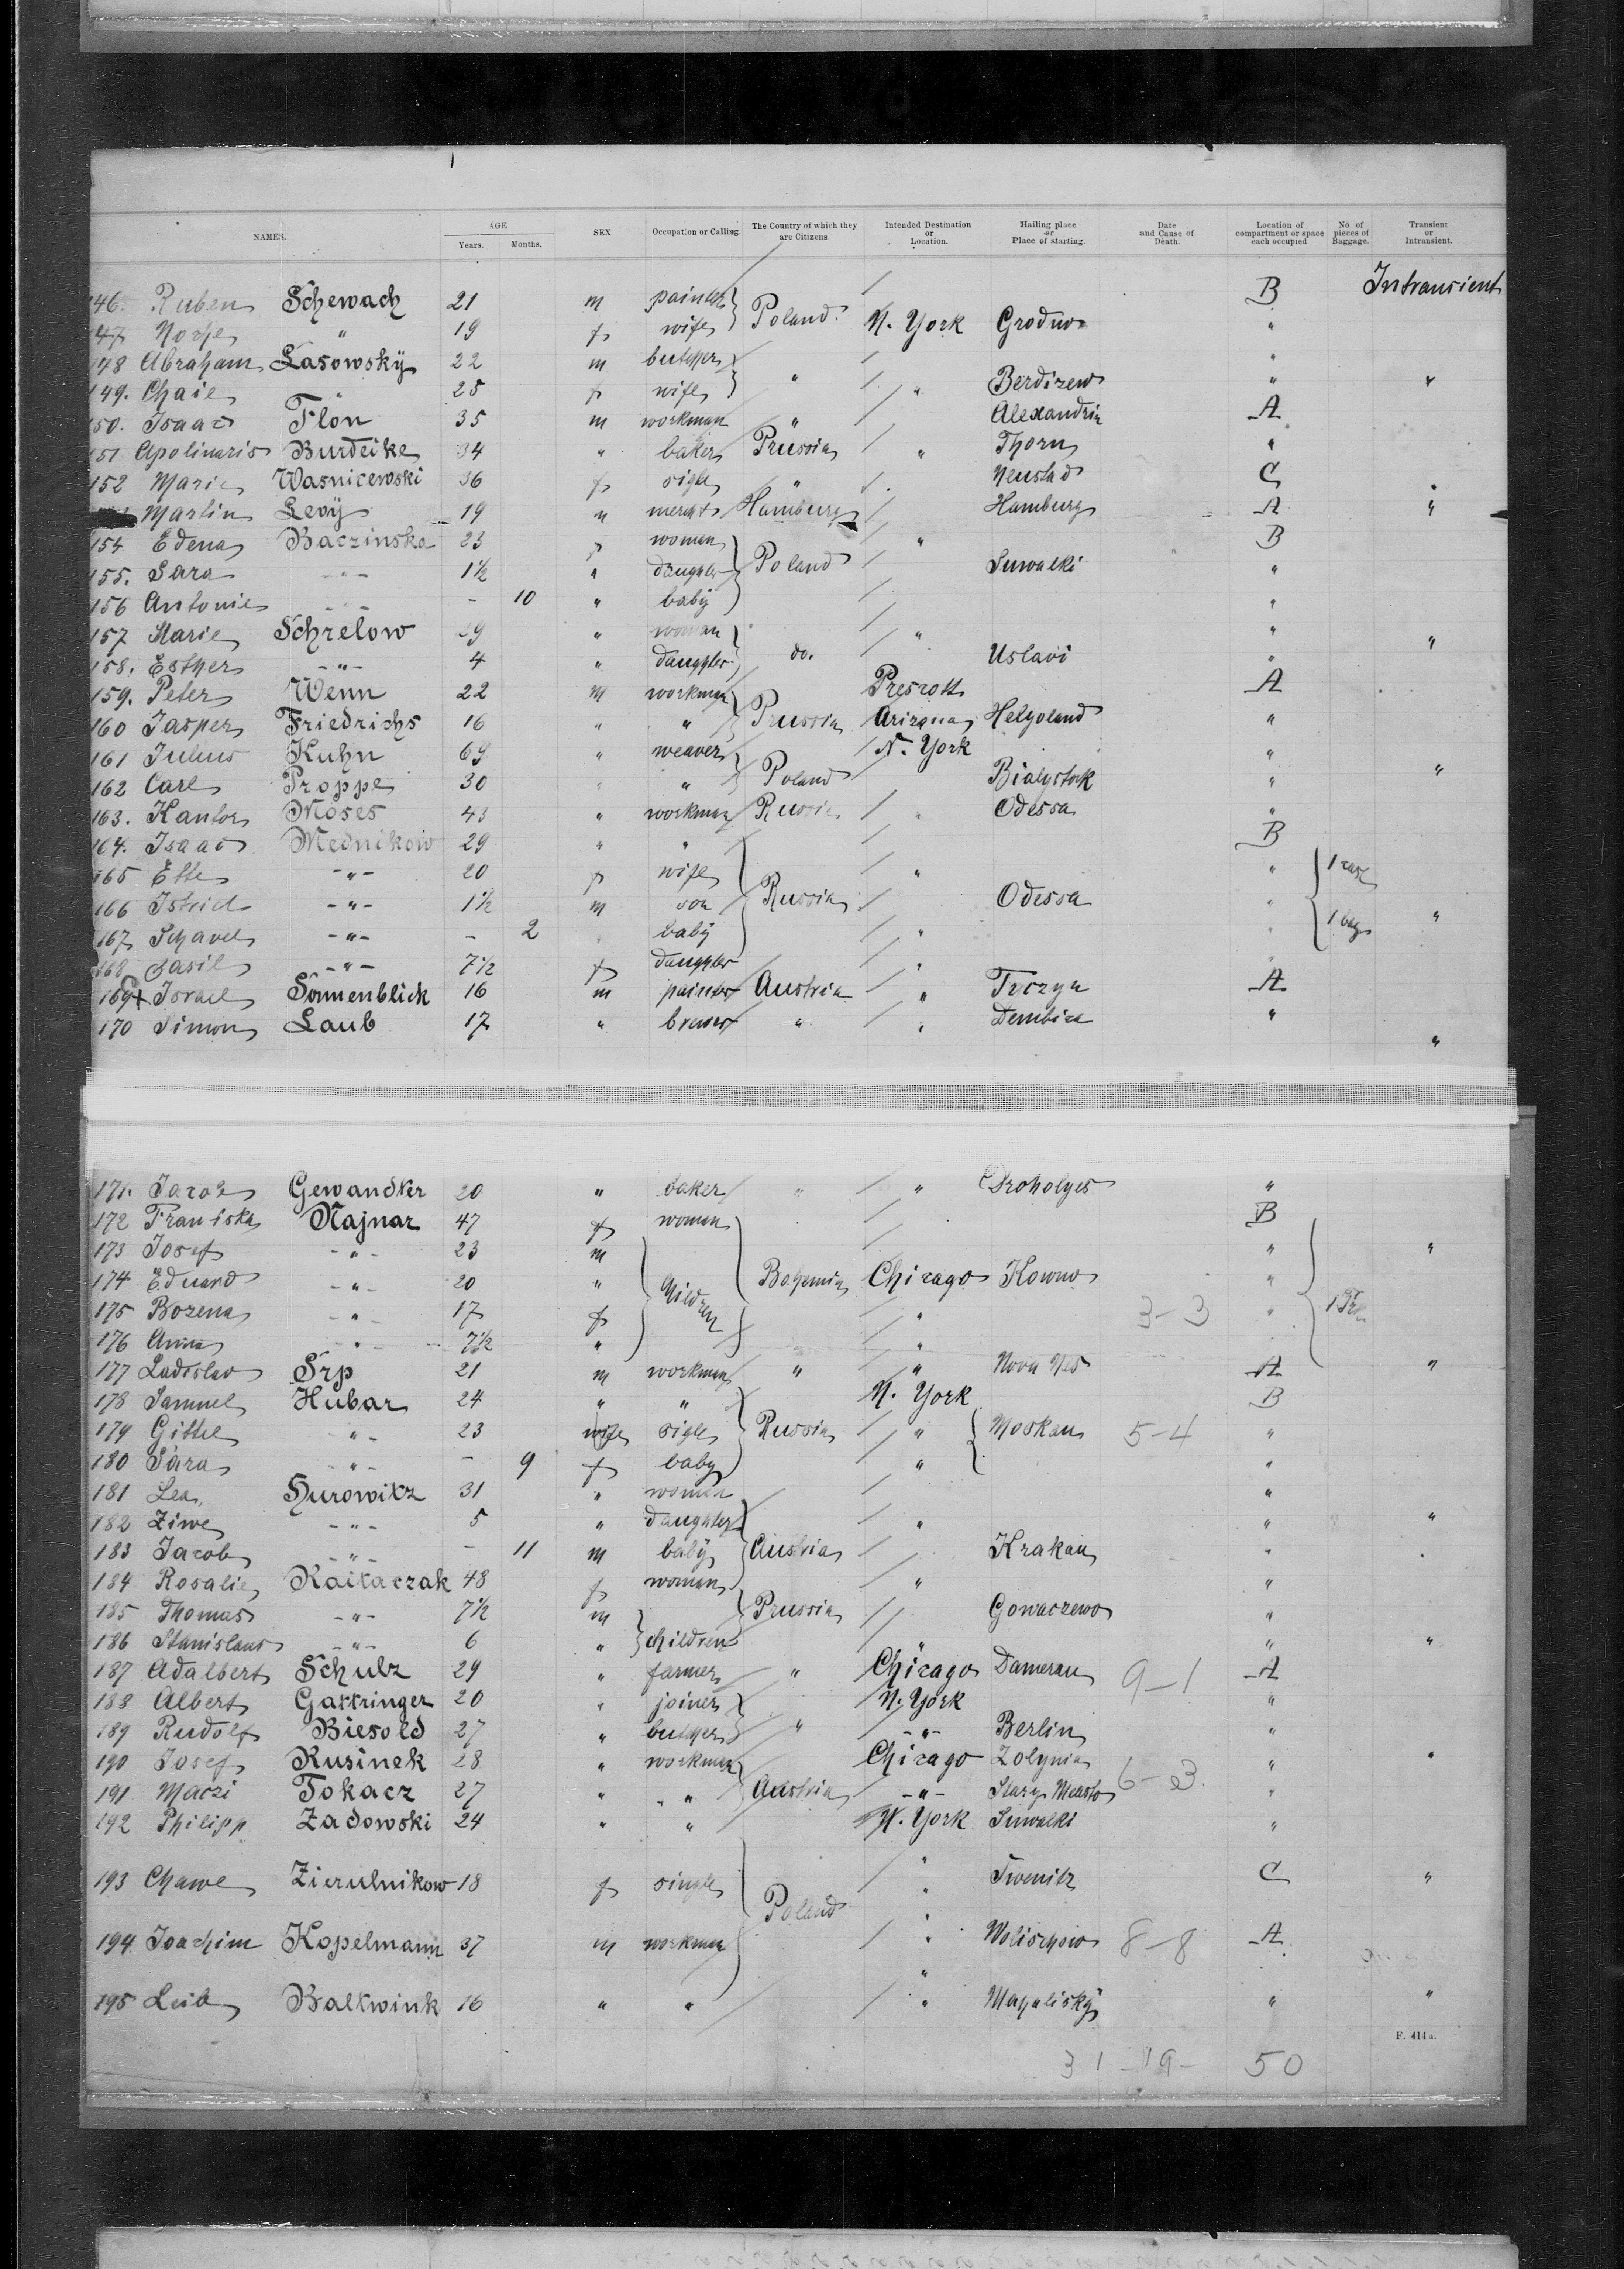 NAMES. AGE Years. Months. SEX Occupation or Calling. The Country of which they are Citizens Intended Destination or Location. Hailing place or Place of starting. Date and Cause of Death. Location of compartment or space each occupied No. of pieces of Baggage. Transient or Intransient.
146. Ruben Schewach 21 m painter Poland B Intransient
147 " 19 f wife N. York Grodno "
148 Abraham Lasowsky 22 m butcher "
149. Chaie " 25 f wife " " Berdizew " "
150. Isaac Flön 35 m workman " Alexandria A
151 Apolinaris Burdeike 34 " baker Prussia " Thorn "
152 Marie Wasnicewski 36 f sigle " Neustad C "
Martin Levy 19 " mercht Hamburg Hamburg A "
154 Edena Baczinska 23 f woman " B
155. Sara -"- 1½ " daughter Poland Suwalki "
156 Antonie -"- - 10 " baby "
157 Marie Schrelow 29 " woman " "
158. Esther -"- 4 " daughter do. Uslavi " "
159. Peter Wenn 22 m workman Prescott A
160 Jasper Friedrichs 16 " " Prussia Arizona Helgoland "
161 Julius Kuhn 69 " weaver N. York "
162 Carl Proppe 30 " " Poland Bialystok " "
163. Kantor Moses 43 " workman Russia " Odessa "
164. Isaac Mednikow 29 " " B
165 Ette -"- 20 f wife " " 1 case
166 Istriel -"- 1½ m son Russia Odessa "
167 Schavel -"- - 2 baby " " 1 bag "
168 -"- 7½ f daughter " "
169 Israel Sonnenblick 16 m painter Austria " Tyczyn A
170 Simon Laub 17 " brewer " " Dembica " "
171. Jacob Gewandter 20 " baker " " Droholyes "
172 Franiska Najnar 47 f woman B
173 Josef -"- 23 m " "
174 Eduard -"- 20 " children Bohemia Chicago Kowno "
175 Bozena -"- 17 f " 3-3 "
176 Anna " 7½ " "
177 Ladislav Srp 21 m workman " " Nova Ves A "
178 Samuel Hubar 24 " " N. York B
179 Gittel -"- 23 wife sigle Russia " Moskau 5-4 "
180 Sara -"- - 9 f baby " "
181 Lea Hurowitz 31 " woman "
182 Ziwe -"- 5 " daughter " " "
183 Jacob -"- - 11 m baby Austria Krakau "
184 Rosalie Kaitaczak 48 f woman " "
185 Thomas -"- 7½ m Prussia Gowaczewo "
186 Stanislaus -"- 6 " children " "
187 Adalbert Schulz 29 " farmer " Chicago Damerau 9-1 A
188 Albert Gattringer 20 " joiner N. York "
189 Rudolf Biesold 27 " butcher " -"- Berlin "
190 Josef Rusinek 28 " workman Chicago Zolynia " "
191 Maczi Tokacz 27 " " Austria -"- Stary Measto 6-3 "
192 Philipp Zadowski 24 " " N. York Suwalki "
193 Chawe Zierulnikow 18 f single " C "
194 Joachim Kopelmann 37 m workman Poland " Wolischow 8-8 A
195 Leib Baltwink 16 " " " " "
F. 414a.
31-19- 50